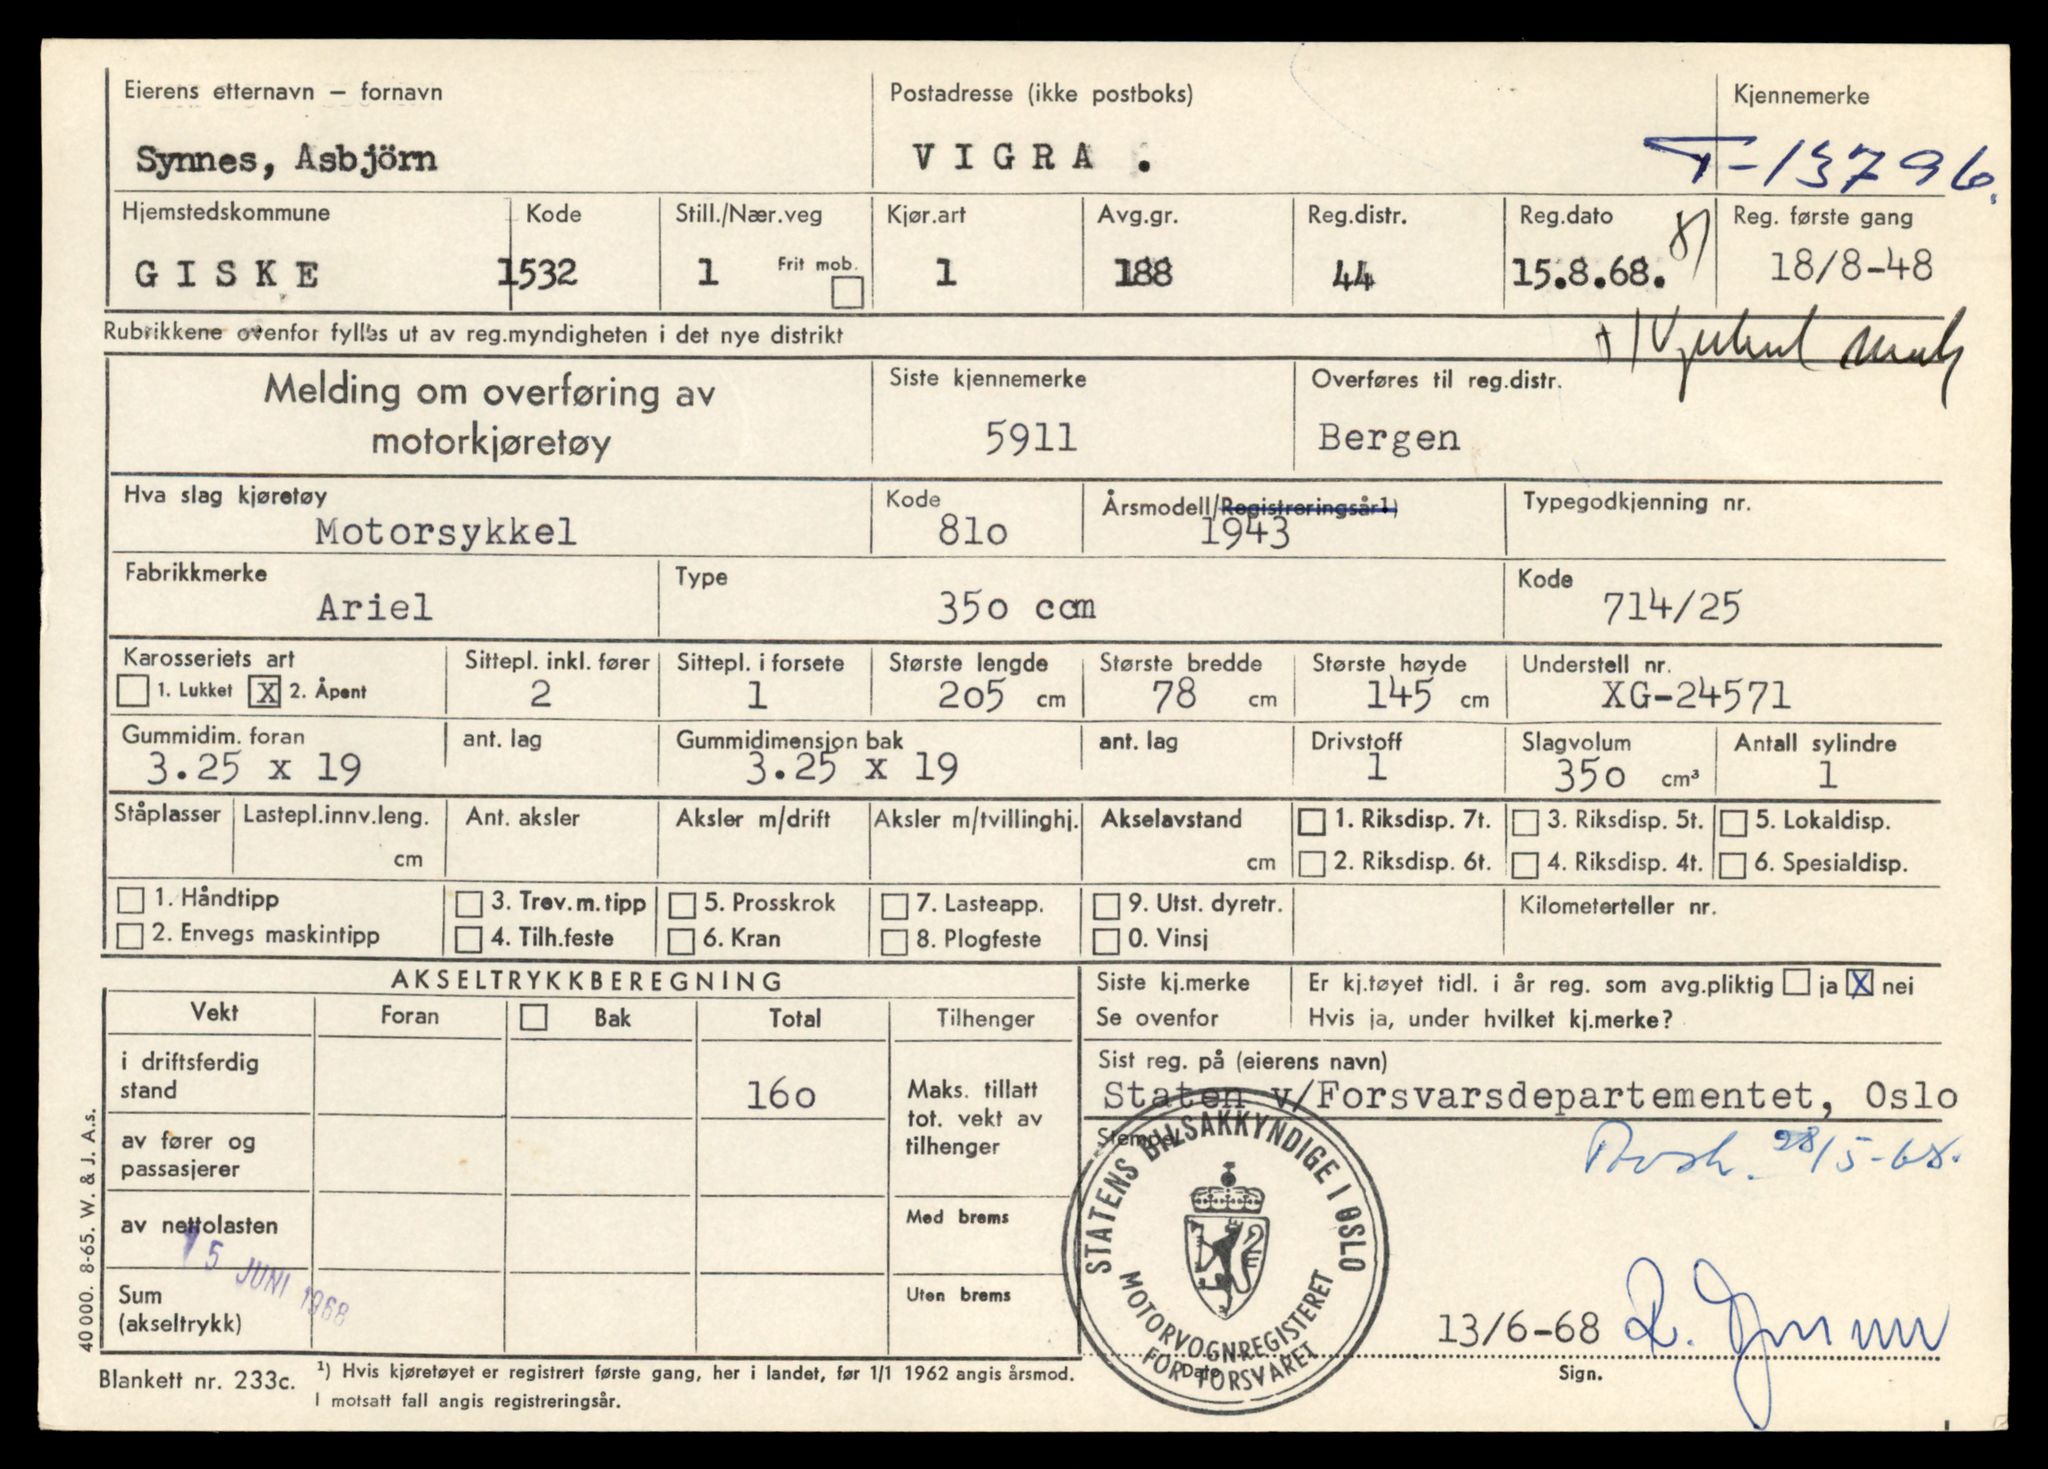 Eierens etternavn – fornavn Postadresse (ikke postboks) Kjennemerke
Synnes, Asbjörn VIGRA . T-13796.
Hjemstedskommune Kode Still./Nær.veg Kjør.art Avg.gr. Reg.distr. Reg.dato Reg. første gang
GISKE 1532 1 Frit mob. 1 188 44 15.8.68. 18/8-48
Rubrikkene ovenfor fylles ut av reg.myndigheten i det nye distrikt
Melding om overføring av Siste kjennemerke Overføres til reg.distr.
motorkjøretøy 5911 Bergen
Hva slag kjøretøy Kode Årsmodell/Registreringsår1) Typegodkjenning nr.
Motorsykkel 81o 1943
Fabrikkmerke Type Kode
Ariel 35o ccm 714/25
Karosseriets art Sittepl. inkl. fører Sittepl. i forsete Største lengde Største bredde Største høyde Understell nr.
1. Lukket X 2. Åpent 2 1 2o5 cm 78 cm 145 cm XG-24571
Gummidim. foran ant. lag Gummidimensjon bak ant. lag Drivstoff Slagvolum Antall sylindre
3.25 x 19 3.25 x 19 1 35o cm³ 1
Ståplasser Lastepl.innv.leng. Ant. aksler Aksler m/drift Aksler m/tvillinghj. Akselavstand 1. Riksdisp. 7t. 3. Riksdisp. 5t. 5. Lokaldisp.
cm cm 2. Riksdisp. 6t. 4. Riksdisp. 4t. 6. Spesialdisp.
1. Håndtipp 3. Trev.m.tipp 5. Prosskrok 7. Lasteapp. 9. Utst. dyretr. Kilometerteller nr.
2. Envegs maskintipp 4. Tilh.feste 6. Kran 8. Plogfeste 0. Vinsj
AKSELTRYKKBEREGNING Siste kj.merke Er kj.tøyet tidl. i år reg. som avg.pliktig ja X nei
Vekt Foran Bak Total Tilhenger Se ovenfor Hvis ja, under hvilket kj.merke?
i driftsferdig stand 16o Maks. tillatt tot. vekt av tilhenger Sist reg. på (eierens navn)
Staten v/Forsvarsdepartementet, Oslo
av fører og passasjerer Stempel 28/5-68.
av nettolasten Med brems
STATENS BILSAKKYNDIGE I OSLO
MOTORVOGNREGISTERET
FOR FORSVARET
15 JUNI 1968
Sum (akseltrykk) Uten brems
13/6-68
Dato Sign.
40 000. 8-65. W. & J. A.s.
Blankett nr. 233c. ¹) Hvis kjøretøyet er registrert første gang, her i landet, før 1/1 1962 angis årsmod.
I motsatt fall angis registreringsår.